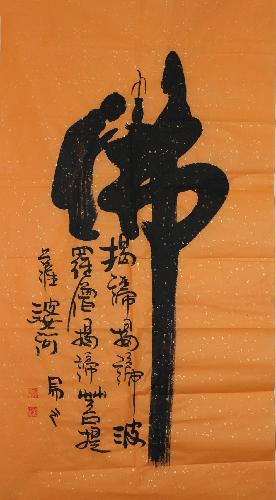 佛
揭諦揭諦波
羅僧揭諦菩提
薩婆訶